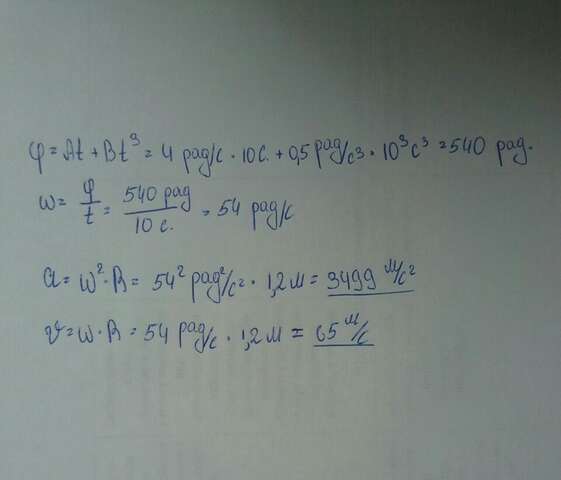 φ = At + Bt³ = 4 рад/с · 10с. + 0,5 рад/с³ · 10³с³ = 540 рад.
ω = φ/t = 540 рад/10 с. = 54 рад/с
a = ω² · R = 54² рад²/с² · 1,2м = 3499 м/с²
v = ω · R = 54 рад/с · 1,2м = 65 м/с